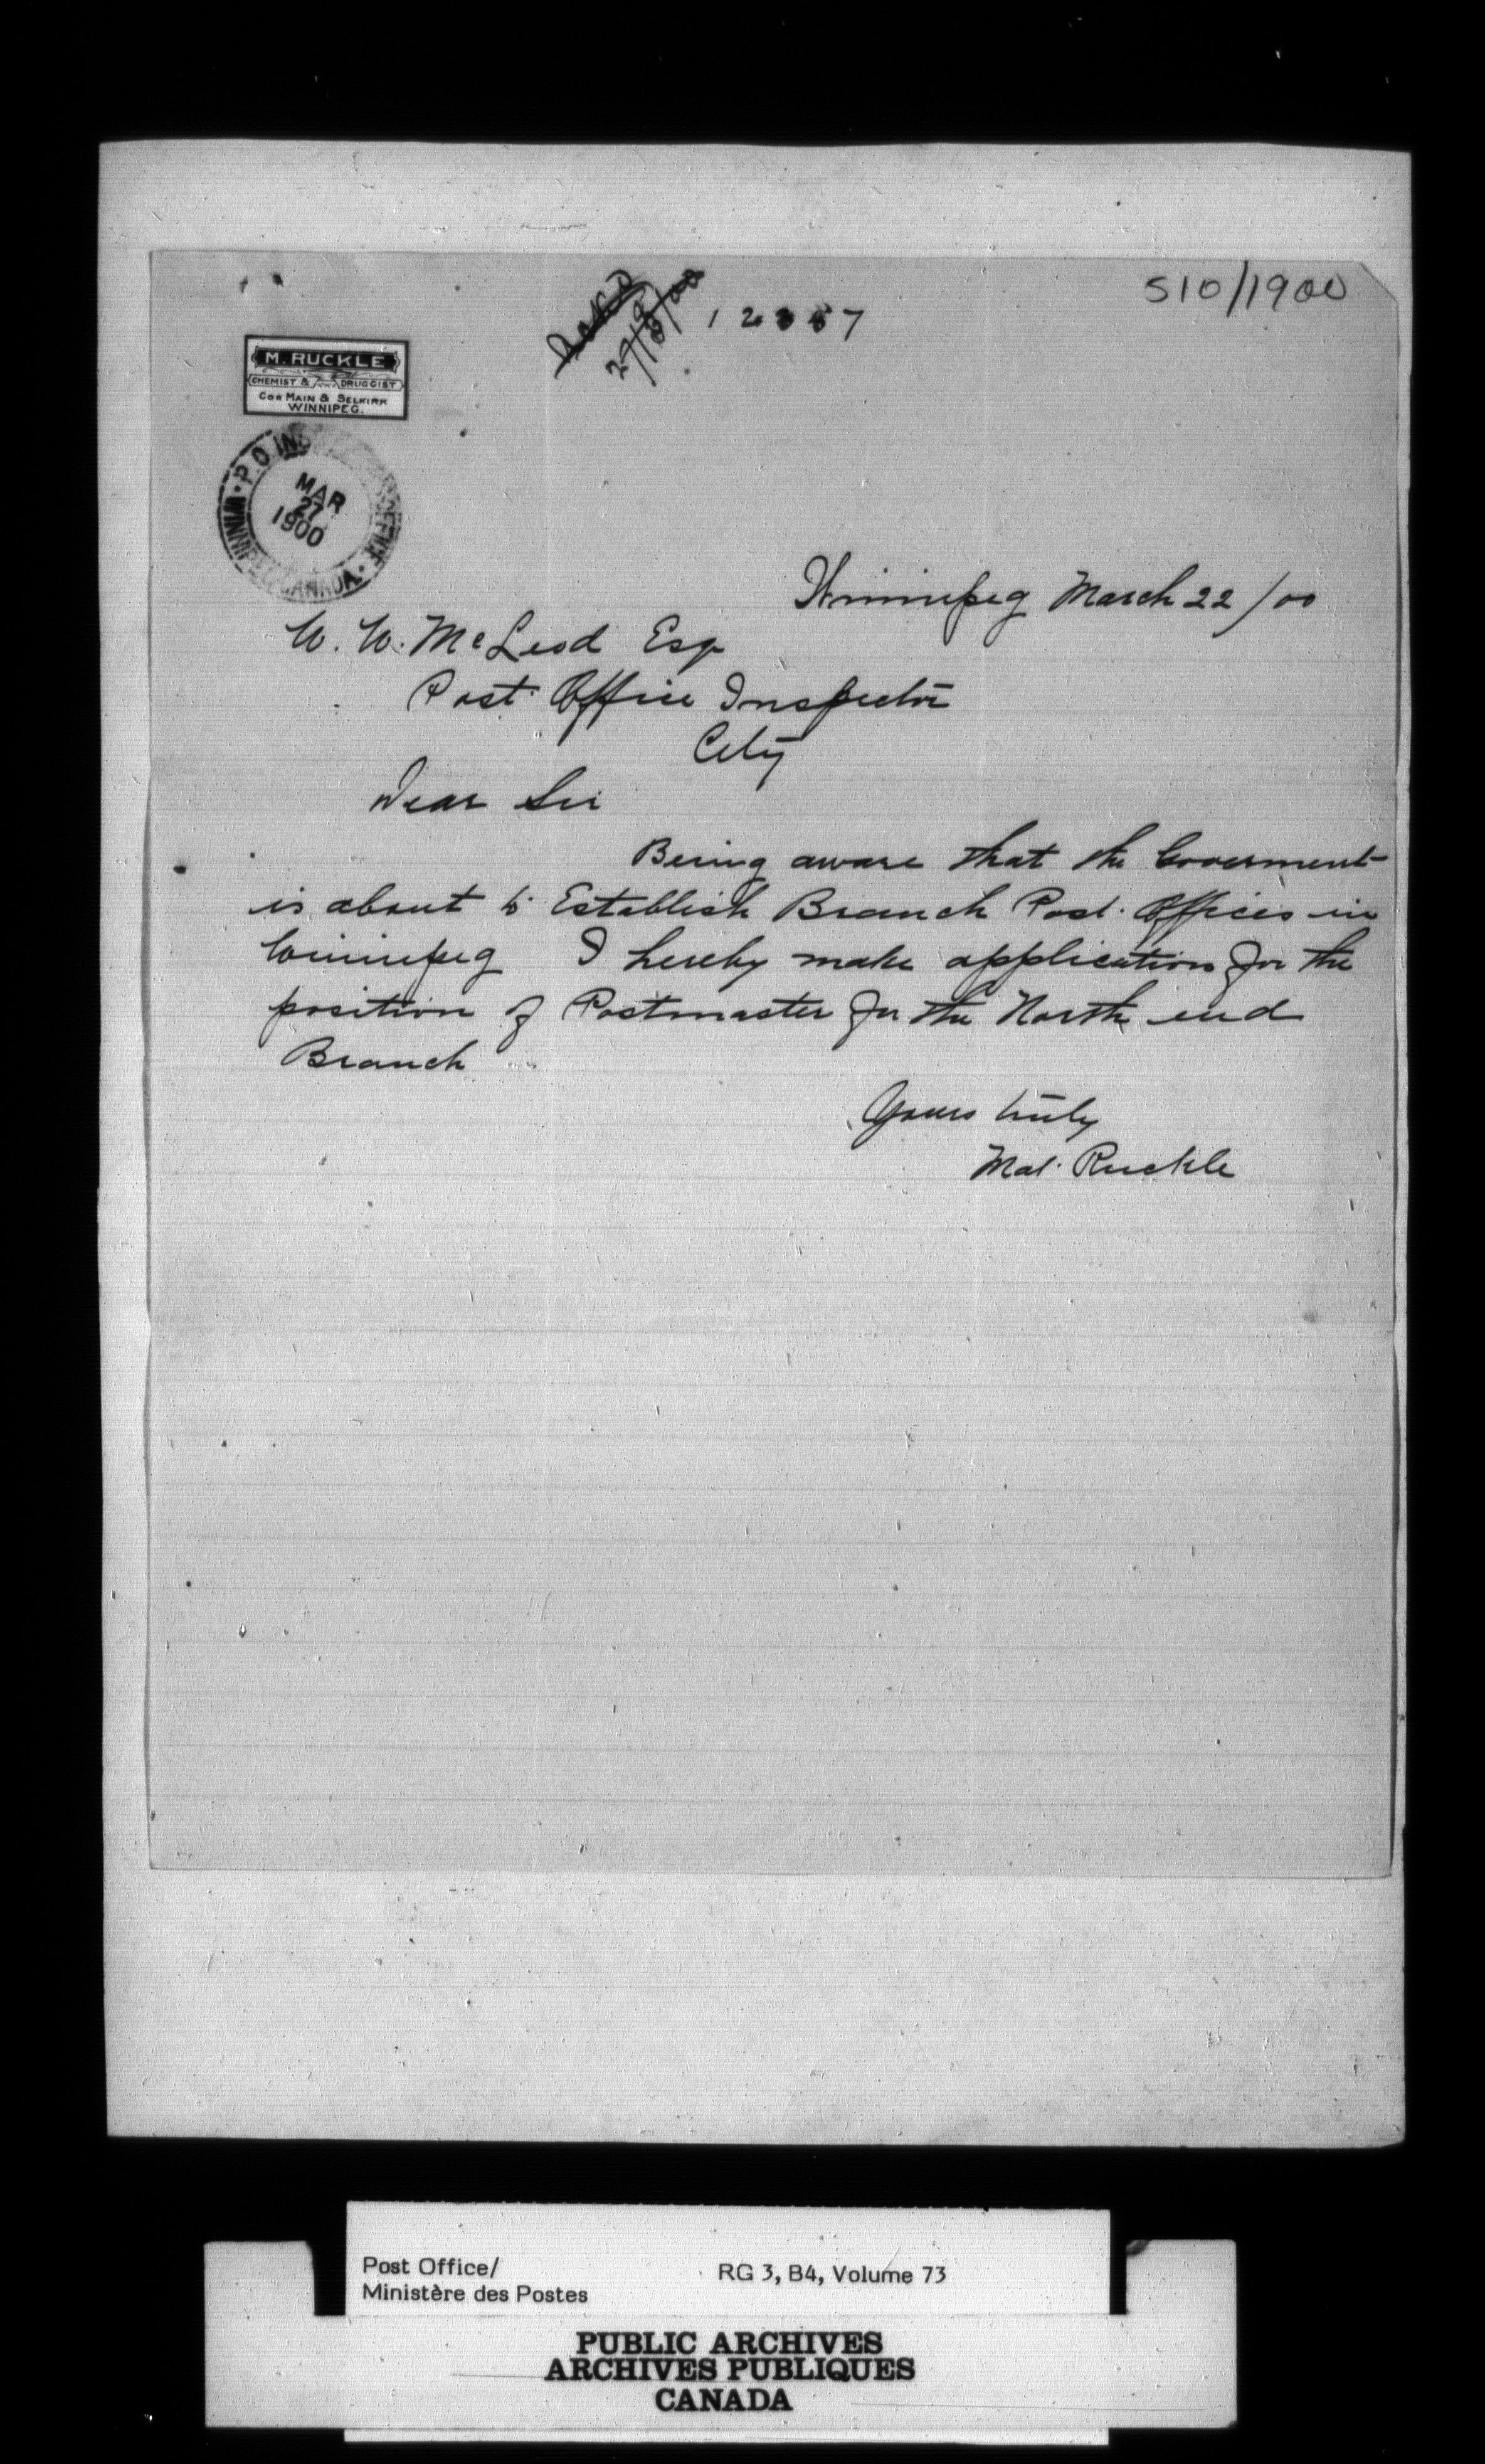 510/1900
27/3/00
M. RUCKLE
CHEMIST & DRUGGIST
COR MAIN & SELKIRK
WINNIPEG.
P.O. INS OFFICE
MAR
27
1900
WINNIPEG CANADA
Winnipeg March 22/00
W. W. McLeod Esq
Post Office Inspector
City
Dear Sir
Being aware that the Goverment
is about to Establish Branch Post Offices in
Winnipeg I hereby make application for the
position of Postmaster for the North end
Branch
Yours truly
Mal. Ruckle
Post Office/
Ministère des Postes
RG 3, B4, Volume 73
PUBLIC ARCHIVES
ARCHIVES PUBLIQUES
CANADA